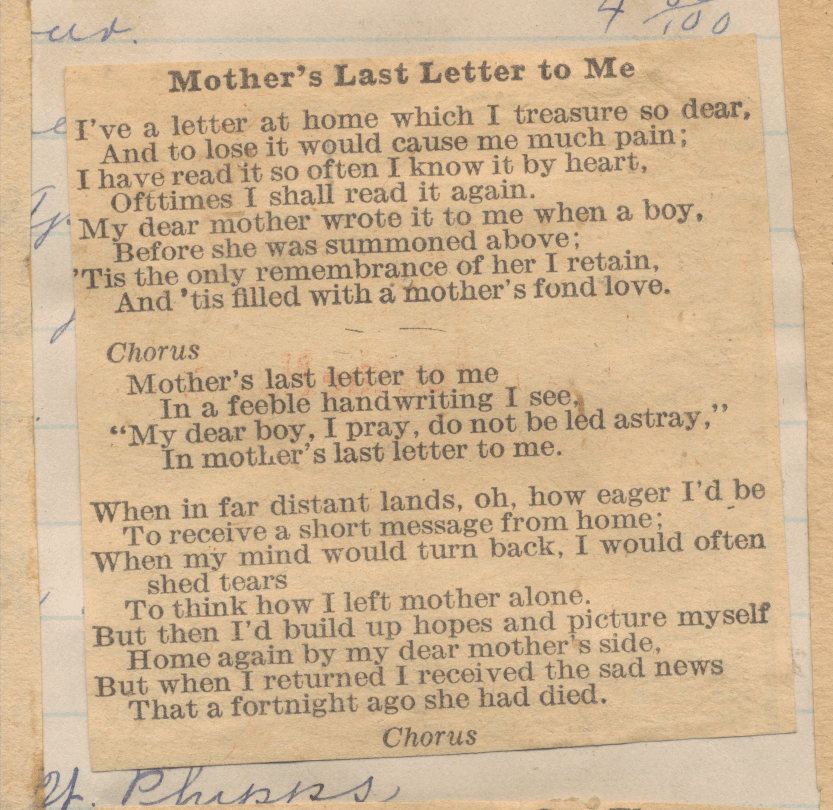 4
100
Mother's Last Letter to Me
I've a letter at home which I treasure so dear,
And to lose it would cause me much pain;
I have read it so often I know it by heart,
Ofttimes I shall read it again.
My dear mother wrote it to me when a boy,
Before she was summoned above;
'Tis the only remembrance of her I retain,
And 'tis filled with a mother's fond love.
Chorus
Mother's last letter to me
In a feeble handwriting I see,
“My dear boy, I pray, do not be led astray,”
In mother's last letter to me.
When in far distant lands, oh, how eager I'd be
To receive a short message from home;
When my mind would turn back, I would often
shed tears
To think how I left mother alone.
But then I'd build up hopes and picture myself
Home again by my dear mother's side,
But when I returned I received the sad news
That a fortnight ago she had died.
Chorus
Phipps